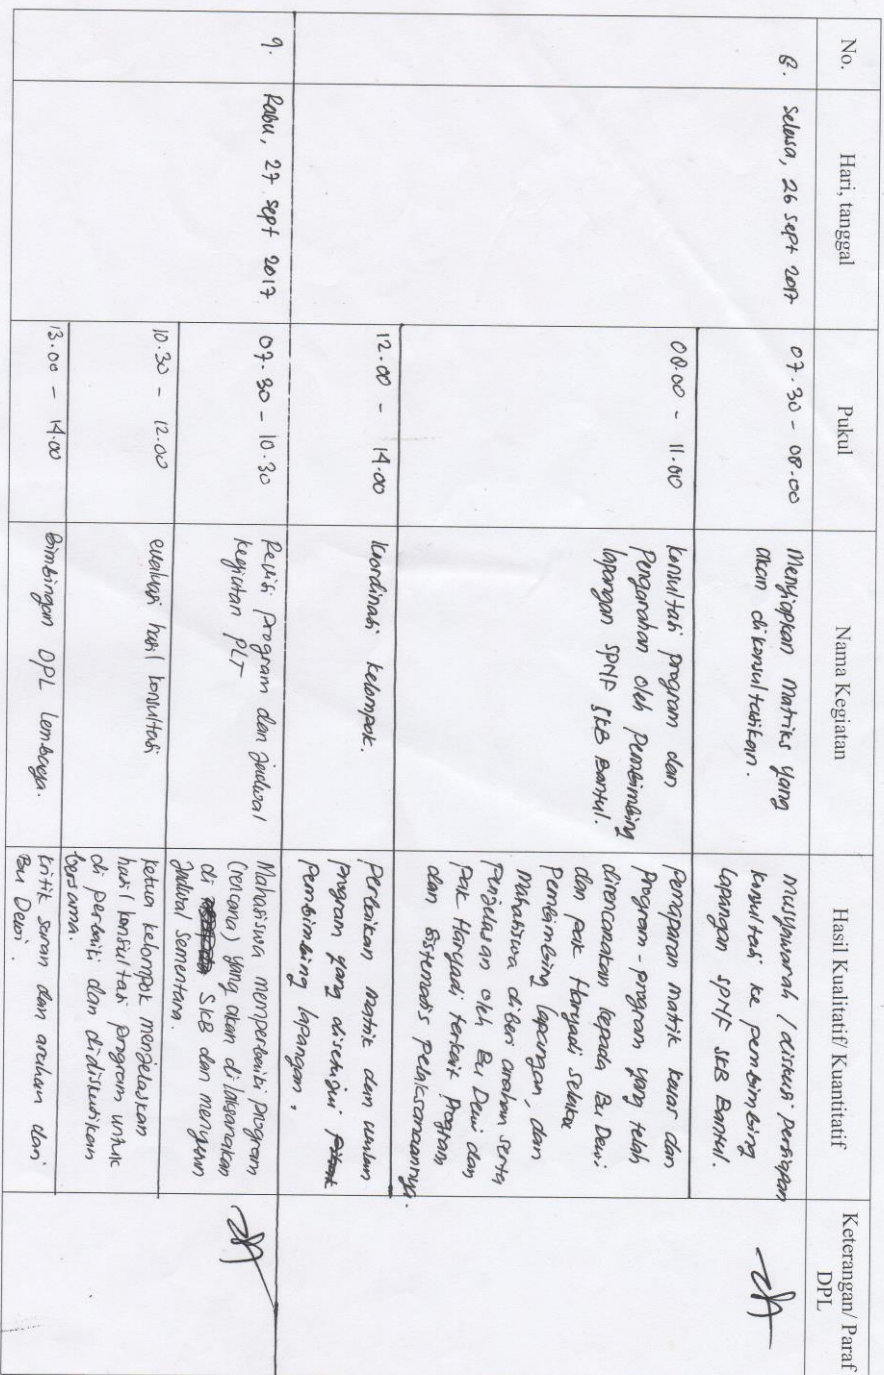 No.
Hari, tanggal
Pukul
Nama Kegiatan
Hasil Kualitatif/ Kuantitatif
Keterangan/ Paraf
DPL
8.
Selasa, 26 Sept 2017
07.30 - 08.00
Menyiapkan matriks yang
akan dikonsultasikan.
musyawarah / diskusi persiapan
konsultasi ke pembimbing
lapangan SPNF SKB Bantul.
08.00 - 11.00
konsultasi program dan
pengarahan oleh pembimbing
lapangan SPNF SKB Bantul.
Pemaparan matrik kasar dan
program - program yang telah
direncanakan kepada Bu Dewi
dan pak Haryadi selaku
Pembimbing lapangan, dan
Mahasiswa diberi arahan serta
Penjelasan oleh Bu Dewi dan
Pak Haryadi terkait Program
dan Sistematis pelaksanaannya.
12.00 - 14.00
koordinasi kelompok.
Perbaikan matrik dan usulan
program yang disetujui
Pembimbing lapangan.
9.
Rabu, 27 Sept 2017
07.30 - 10.30
Revisi program dan jadwal
kegiatan PLT
Mahasiswa memperbaiki program
(rencana) yang akan dilaksanakan
di SKB dan menyusun
Jadwal sementara.
10.30 - 12.00
evaluasi hasil konsultasi
ketua kelompok menjelaskan
hasil konsultasi program untuk
di perbaiki dan didiskusikan
bersama.
13.00 - 14.00
Bimbingan DPL Lembaga.
kritik saran dan arahan dari
Bu Dewi.